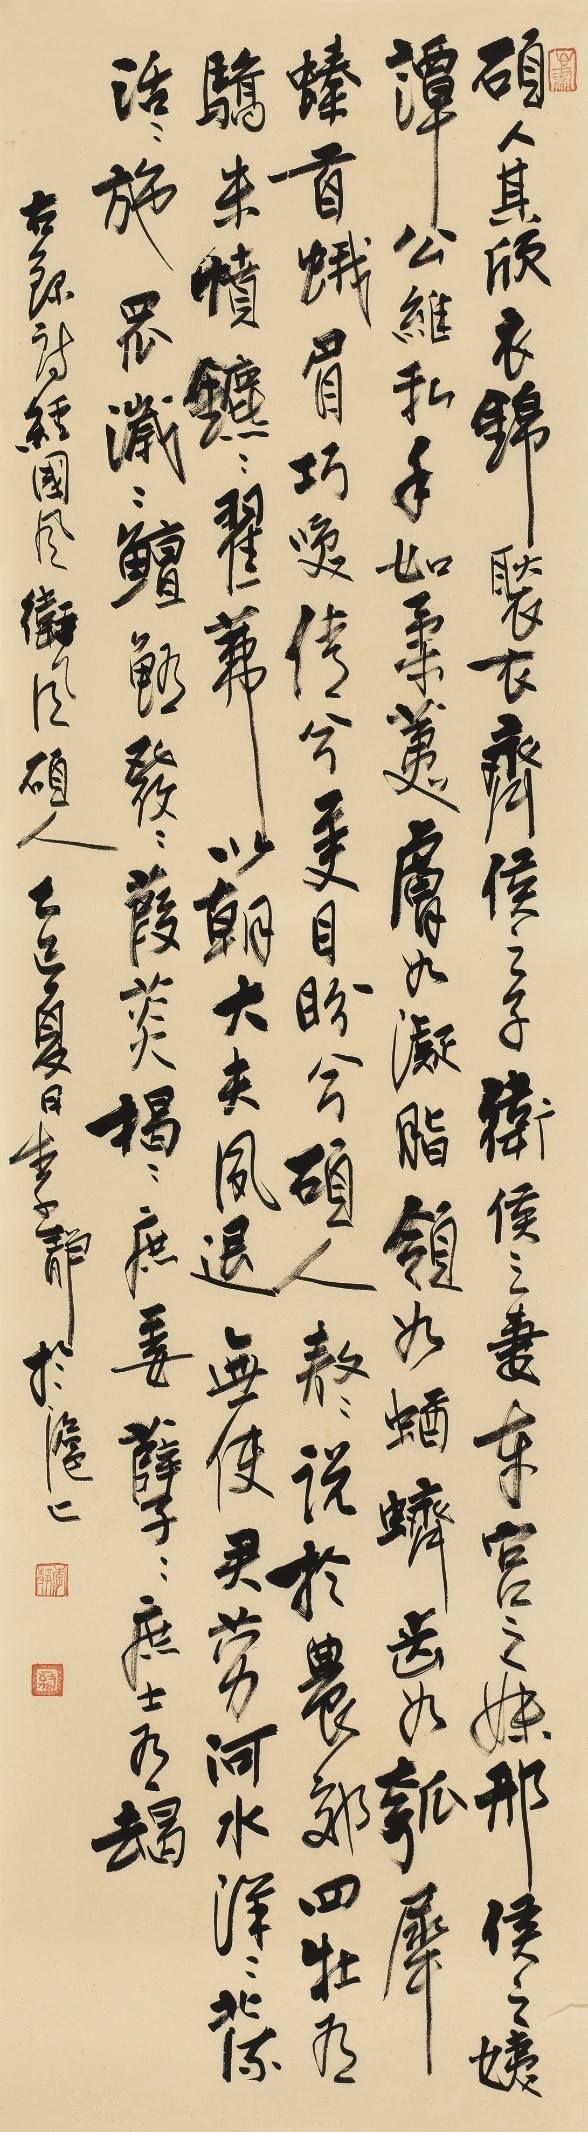 碩人其頎衣錦褧衣齊侯之子衛侯之妻東宮之妹邢侯之姨
譚公維私手如柔荑膚如凝脂領如蝤蠐齒如瓠犀
螓首蛾眉巧笑倩兮美目盼兮碩人敖〻說於農郊四牡有
驕朱幩鑣〻翟茀以朝大夫夙退無使君勞河水洋〻北流
活〻施罛濊〻鱣鮪發〻葭菼揭〻庶姜孽〻庶士有朅
右錄詩經國風衛風碩人乙巳夏日李靜於滬上
李靜